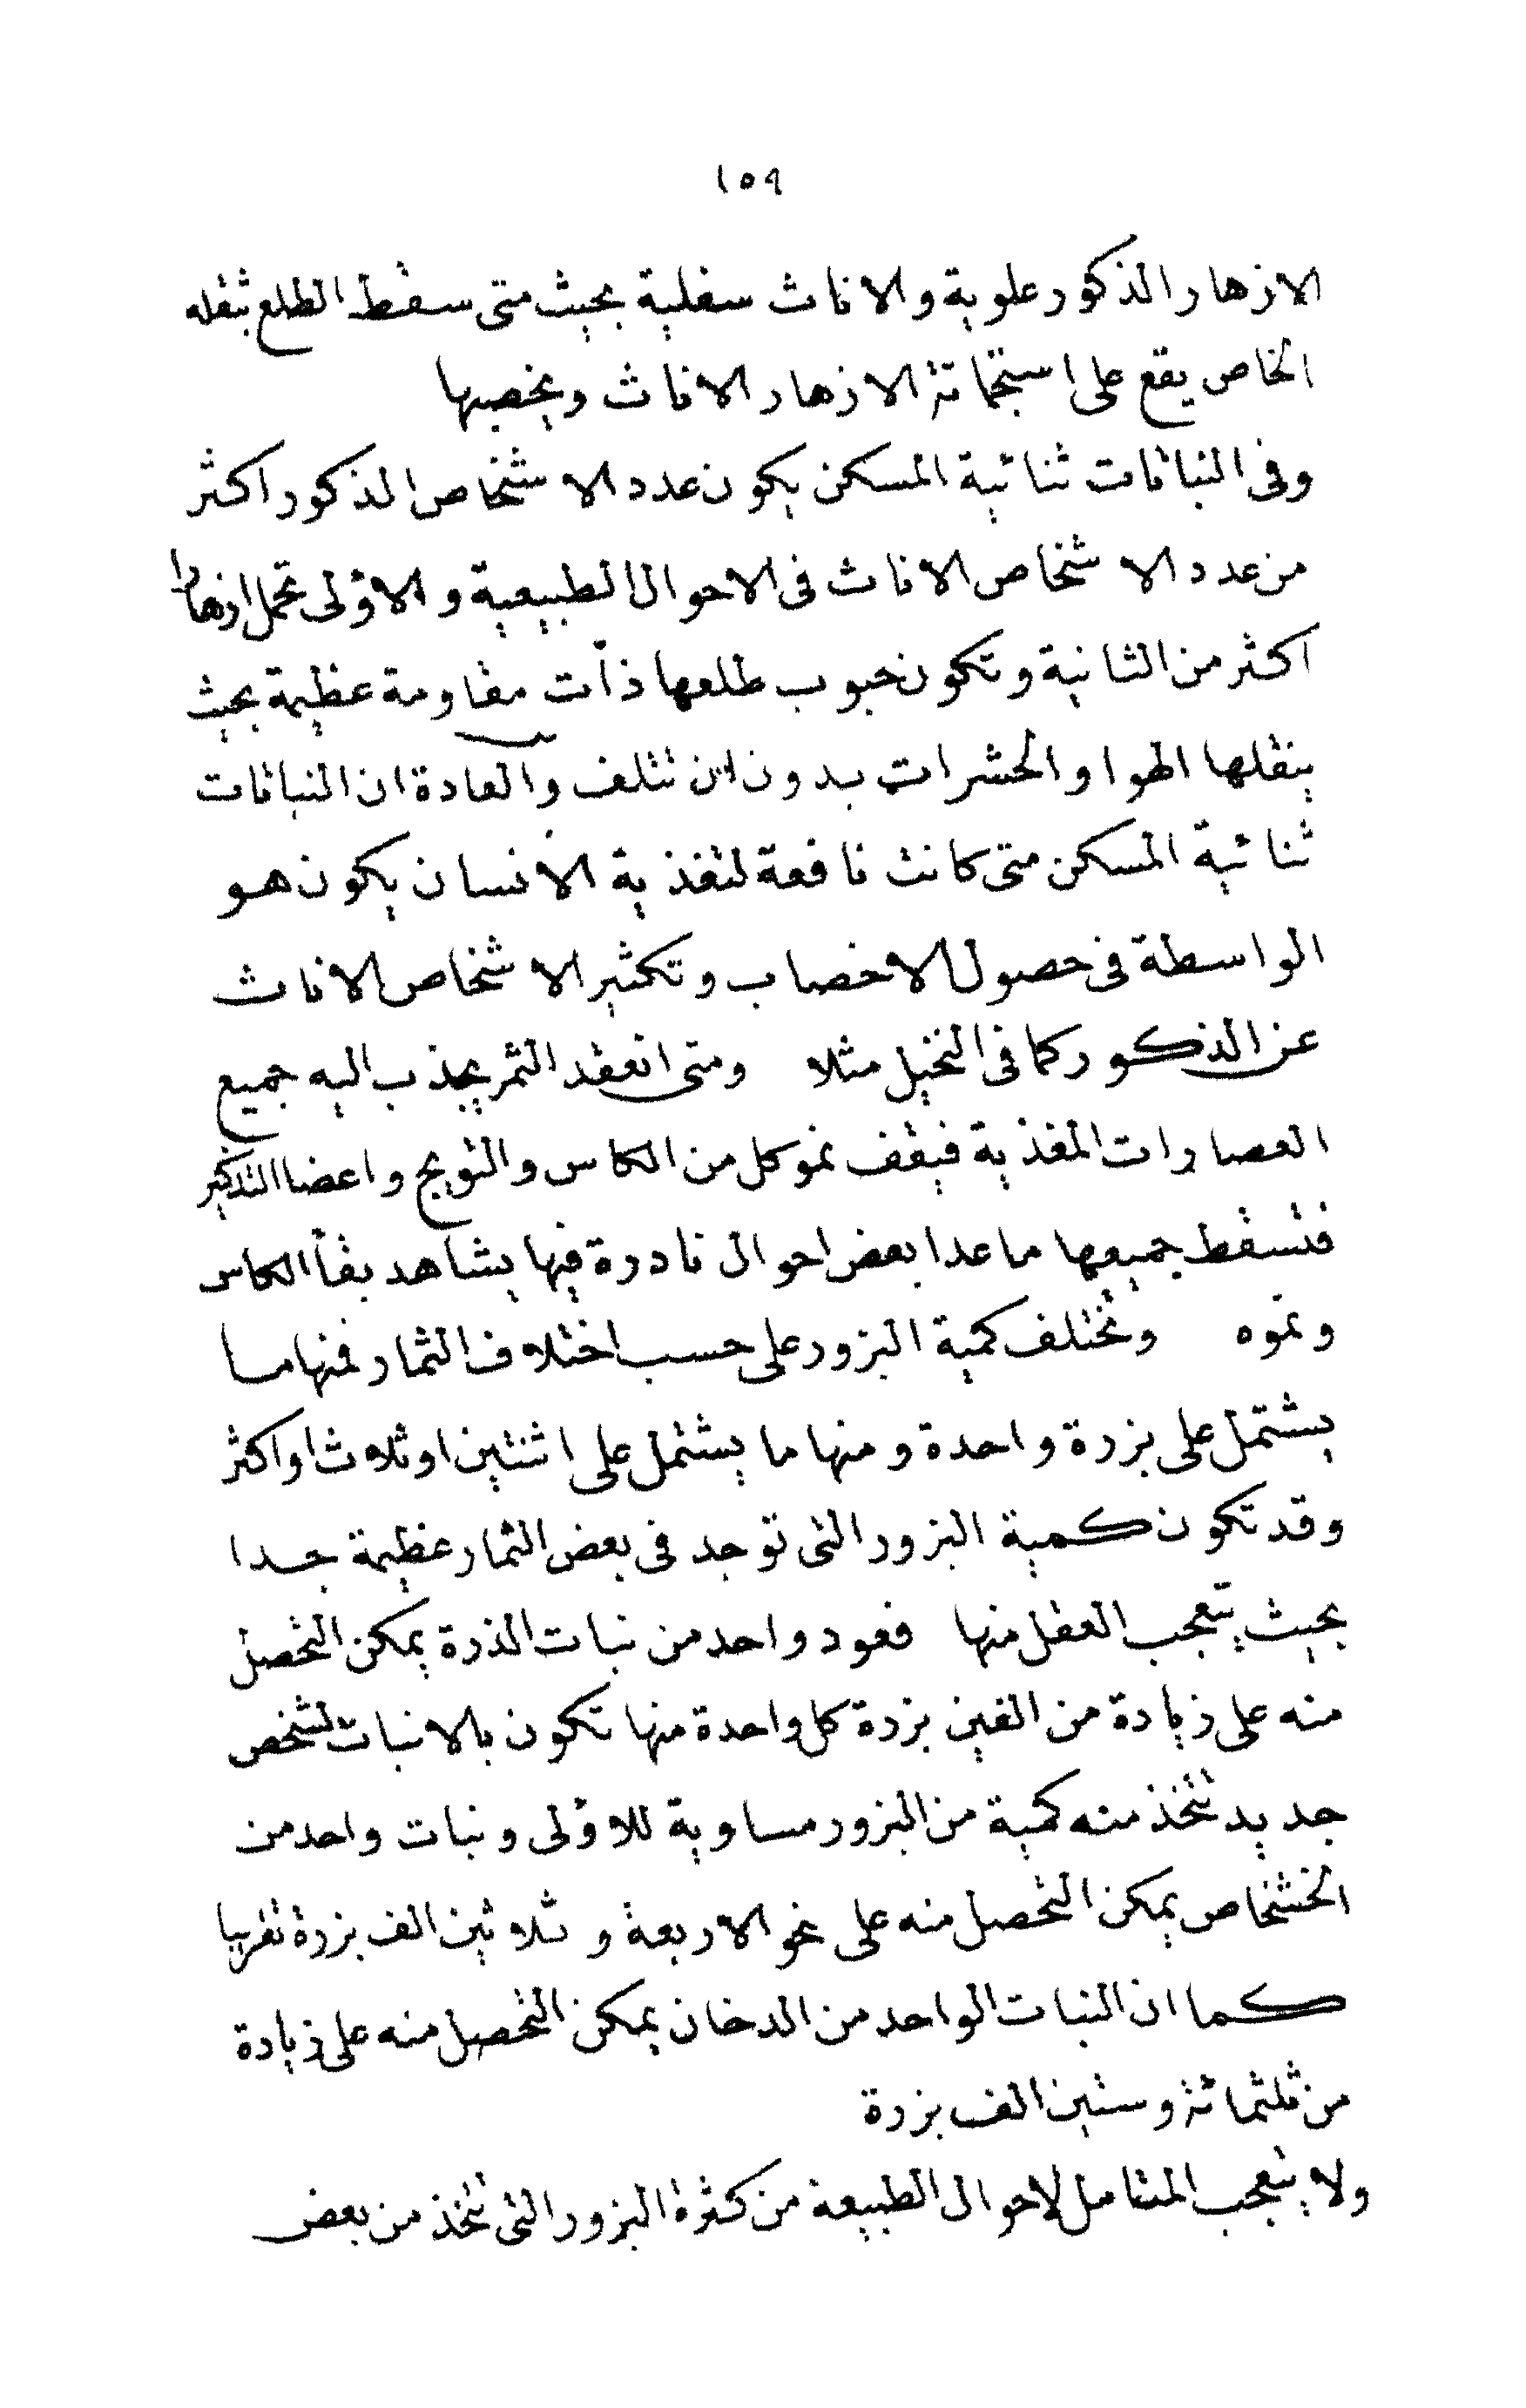 ١٥٩
الازهار الذكور علوية والاناث سفلية بحيث متى سقط الطلع بثقله
الخاص يقع على استجماتة الازهار الاناث ويخصبها
وفى النباتات ثنائية المسكن يكون عدد الاشخاص الذكور اكثر
من عدد الاشخاص الاناث فى الاحوال الطبيعية والاؤلى تحمل ازهارا
اكثر من الثانية وتكون حبوب طلعها ذات مقاومة عظيمة بحيث
ينقلها الهوا والحشرات بدون ان تتلف والعادة ان النباتات
ثنائية المسكن متى كانت نافعة لتغذية الانسان يكون هو
الواسطة فى حصول الاخصاب وتكثير الاشخاص الاناث
عن الذكور كما فى النخيل مثلا ومتى انعقد الثمر يجذب اليه جميع
العصارات المغذية فيقف نمو كل من الكاس والتويج واعضا التذكير
فتسقط جميعها ماعدا بعض احوال نادرة فيها يشاهد بقاً الكاس
ونموه وتختلف كمية البزور على حسب اختلاف الثمار فمنها ما
يشتمل على بزرة واحدة ومنها ما يشتمل على اثنتين او ثلاث او اكثر
وقد تكون كمية البزور التى توجد فى بعض الثمار عظيمة جدا
بحيث يتعجب العقل منها فعود واحد من نبات الذرة يمكن التحصل
منه على زيادة من الفين بزرة كل واحدة منها تكون بالانبات لشخص
جديد تتخذ منه كمية من البزور مساوية للاؤلى ونبات واحد من
الخشخاص يمكن التحصل منه على نحو الاربعة وثلاثين الف بزرة تقريبا
كما ان النبات الواحد من الدخان يمكن التحصل منه على زيادة
من ثلثمائة وستين الف بزرة
ولا يتعجب المتامل لاحوال الطبيعة من كثرة البزور التى تتخذ من بعض